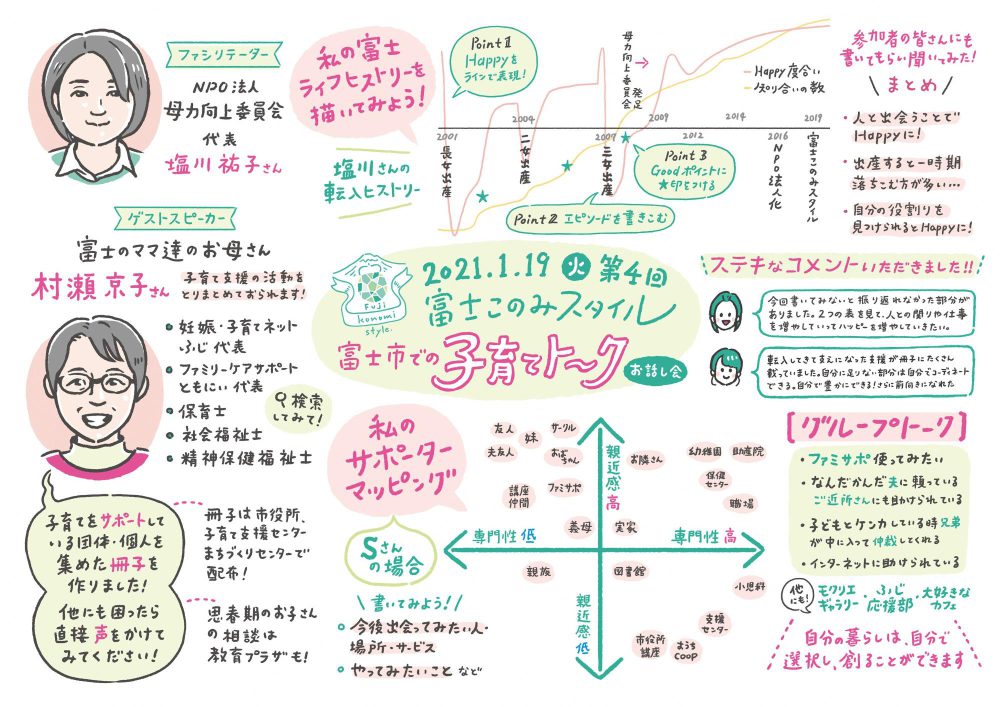 ファシリテーター
NPO法人
母力向上委員会
代表
塩川 祐子さん
私の富士
ライフヒストリーを
描いてみよう!
塩川さんの
転入ヒストリー
Point 1
Happyを
ラインで表現!
母力向上委員会 発足
→
Happy度合い
知り合いの数
2001
2004
2007
2009
2012
2014
2016
2019
長女出産
二女出産
三女出産
NPO法人化
富士このみスタイル
Point 3
Goodポイントに
★印をつける
Point 2 エピソードを書きこむ
参加者の皆さんにも
書いてもらい聞いてみた!
\ まとめ /
・人と出会うことで
Happyに!
・出産すると一時期
落ちこむ方が多い…
・自分の役割りを
見つけられるとHappyに!
ゲストスピーカー
富士のママ達のお母さん
村瀬 京子さん
子育て支援の活動を
とりまとめておられます!
・妊娠・子育てネット
ふじ 代表
・ファミリーケアサポート
ともにい 代表
・保育士
・社会福祉士
・精神保健福祉士
検索
してみて!
Fuji
konomi
style.
2021.1.19 火 第4回
富士このみスタイル
富士市での子育てトーク
お話し会
ステキなコメントいただきました!!
今回書いてみないと振り返れなかった部分が
ありました。2つの表を見て、人との関りや仕事
を増やしていってハッピーを増やしていきたい。
転入してきて支えになった支援が冊子にたくさん
載っていました。自分に足りない部分は自分でコーディネート
できる。自分で豊かにできる!さらに前向きになれた
子育てをサポートして
いる団体・個人を
集めた冊子を
作りました!
他にも困ったら
直接声をかけて
みてください!
冊子は市役所、
子育て支援センター
まちづくりセンターで
配布!
思春期のお子さん
の相談は
教育プラザも!
私の
サポーター
マッピング
Sさん
の場合
\ 書いてみよう! /
今後出会ってみたい人・
場所・サービス
やってみたいこと など
親近感 高
親近感 低
専門性 低
専門性 高
友人
妹
サークル
夫友人
おばちゃん
講座
仲間
ファミサポ
義母
実家
お隣さん
幼稚園
助産院
保健
センター
職場
親族
図書館
小児科
支援
センター
市役所
講座
おうち
COOP
[グループトーク]
・ファミサポ使ってみたい
・なんだかんだ夫に頼っている
ご近所さんにも助けられている
・子どもとケンカしている時兄弟
が中に入って仲裁してくれる
・インターネットに助けられている
他にも!
モクリエ
ギャラリー
・ふじ
応援部
・大好きな
カフェ
自分の暮らしは、自分で
選択し、創ることができます